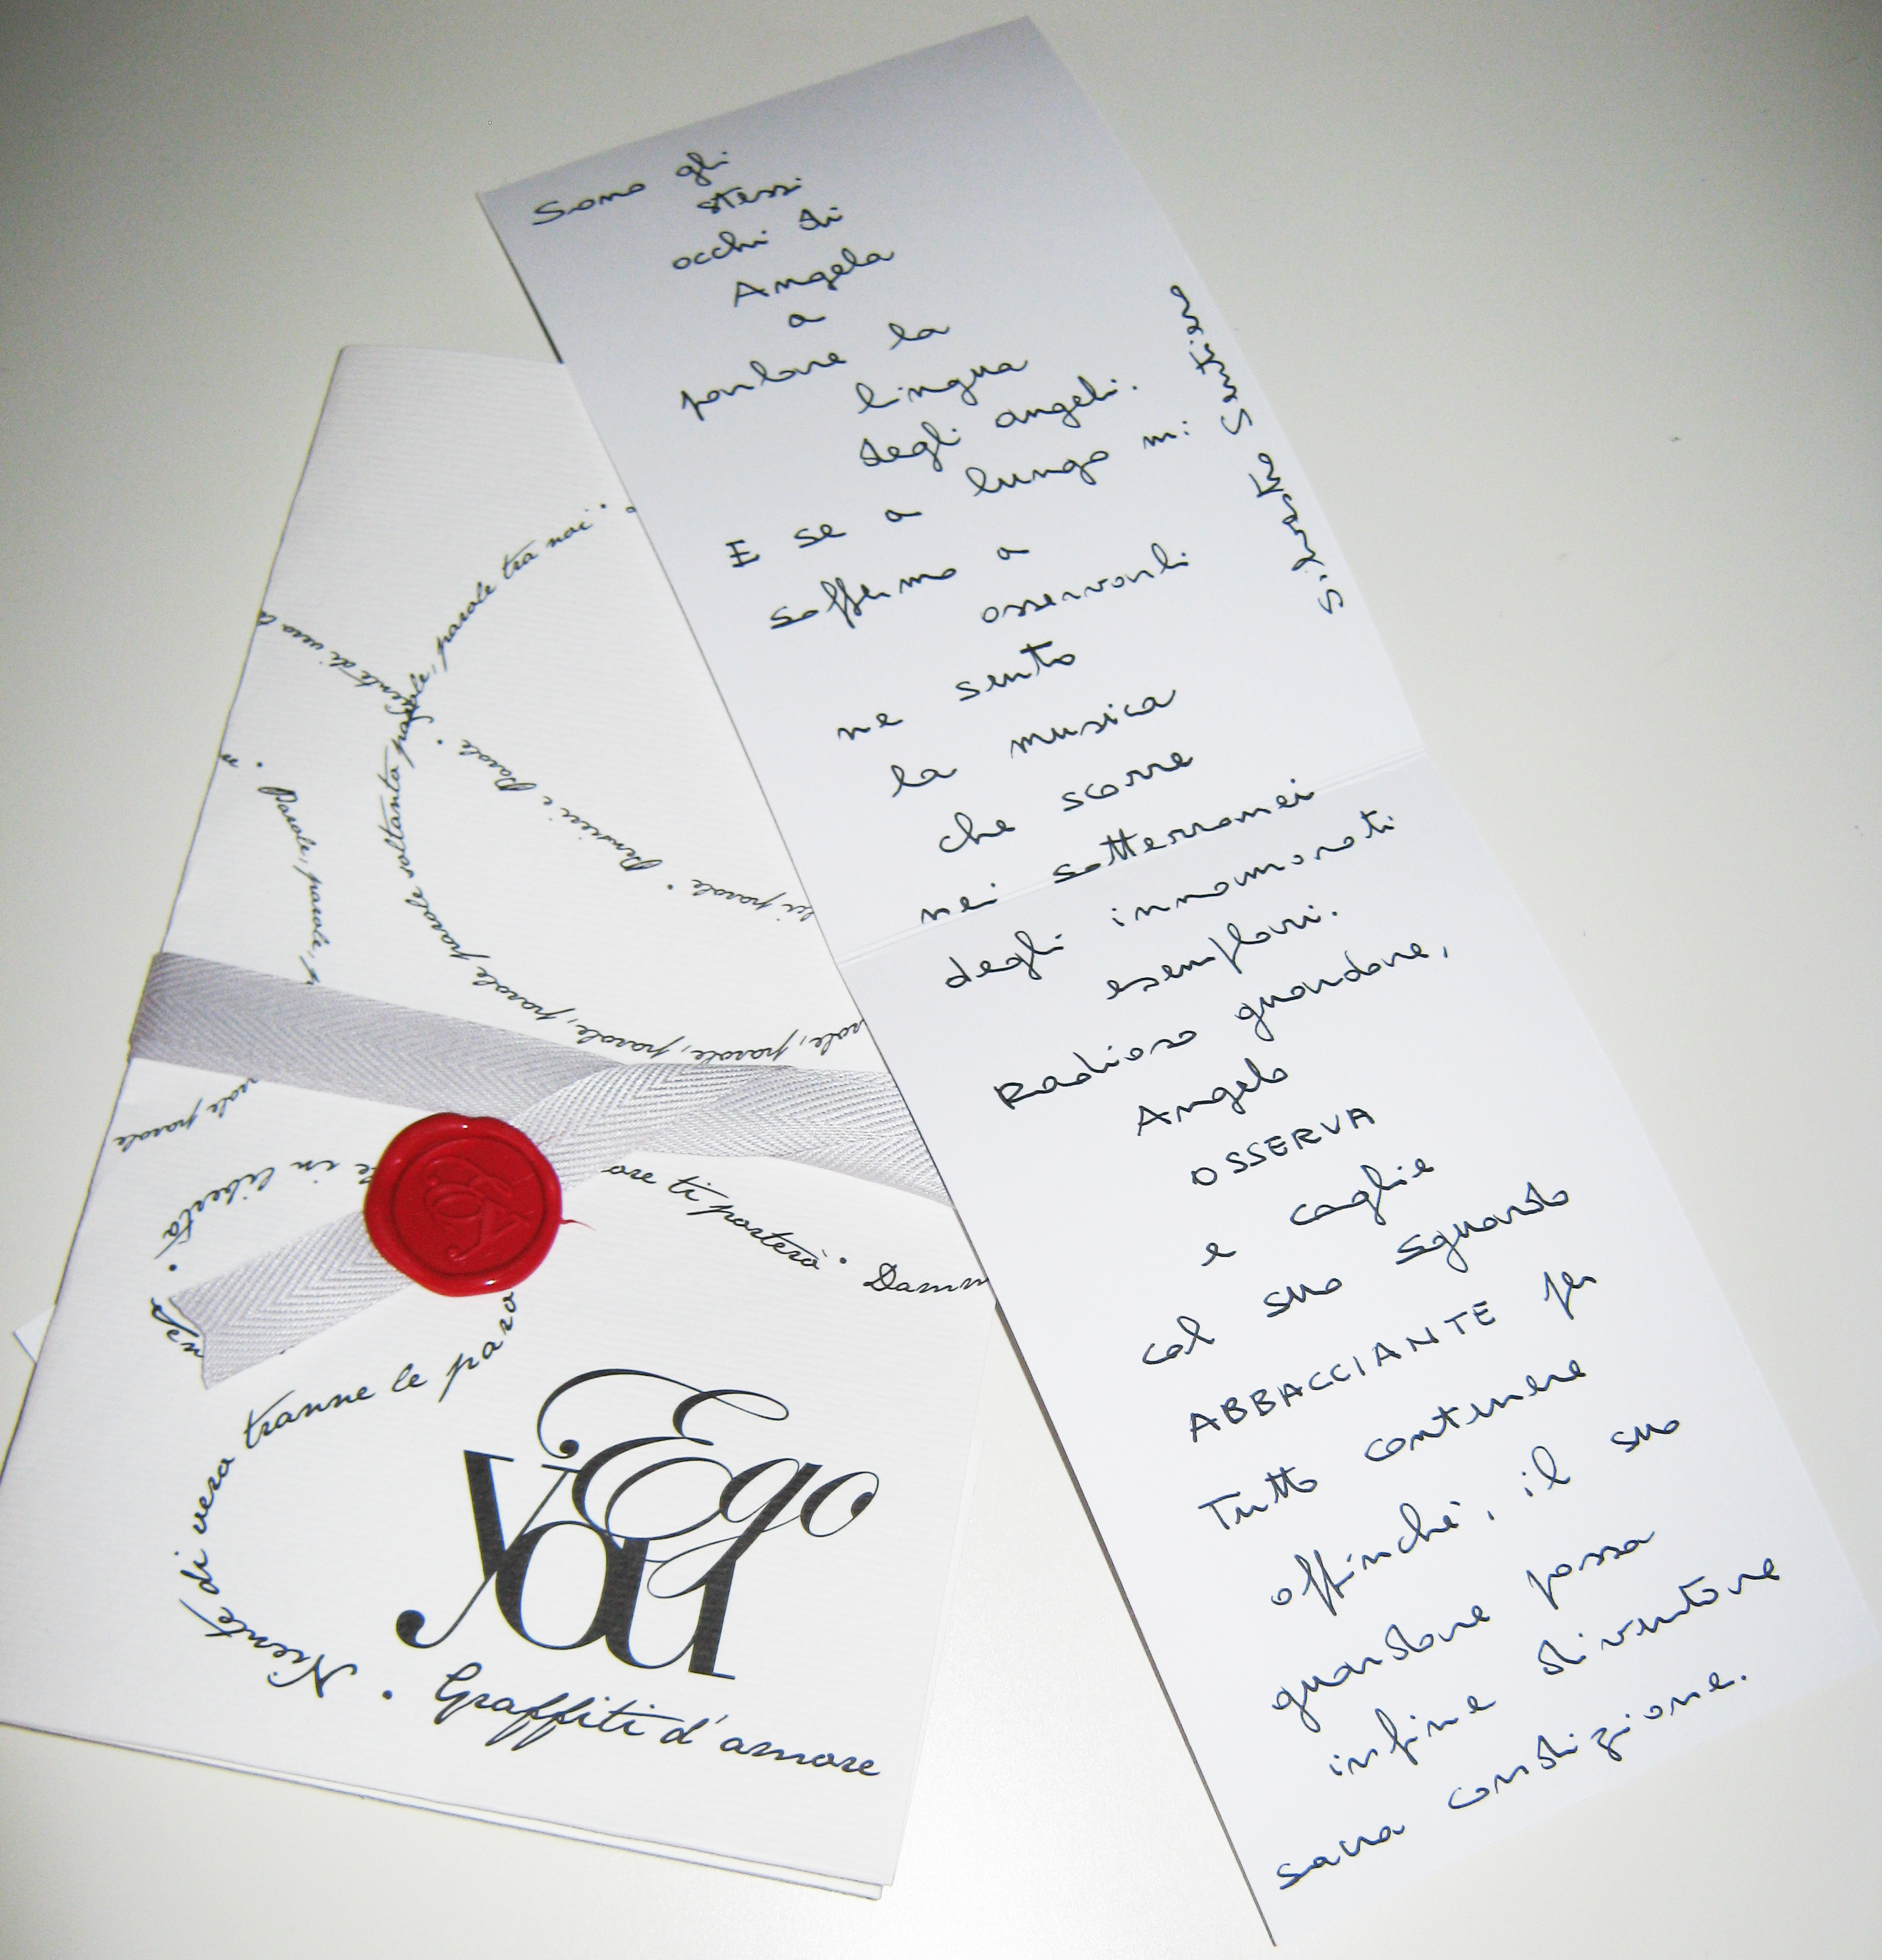 Sono gli
stessi
occhi di
Angela
a
parlare la
lingua
degli angeli.
E se a lungo mi
soffermo a
osservarli
ne sento
la musica
che scorre
nei sotterranei
degli innamorati
esemplari.
Radioso guardare,
Angela
OSSERVA
e coglie
col suo sguardo
ABBACCIANTE per
Tutto contenere
affinché, il suo
guardare possa
infine diventare
sacra condizione.
Silvestro Sentiero
parole tra noi •
parole soltanto parole, parole
niente di vero tr
Pensieri e Parole •
parole •
• Parole, parole,
parole, parole, parole, parole, parole
parole
in libertà •
ore ti porterò • Damm
Niente di vero tranne le paro
Ego
you
• Graffiti d'amore